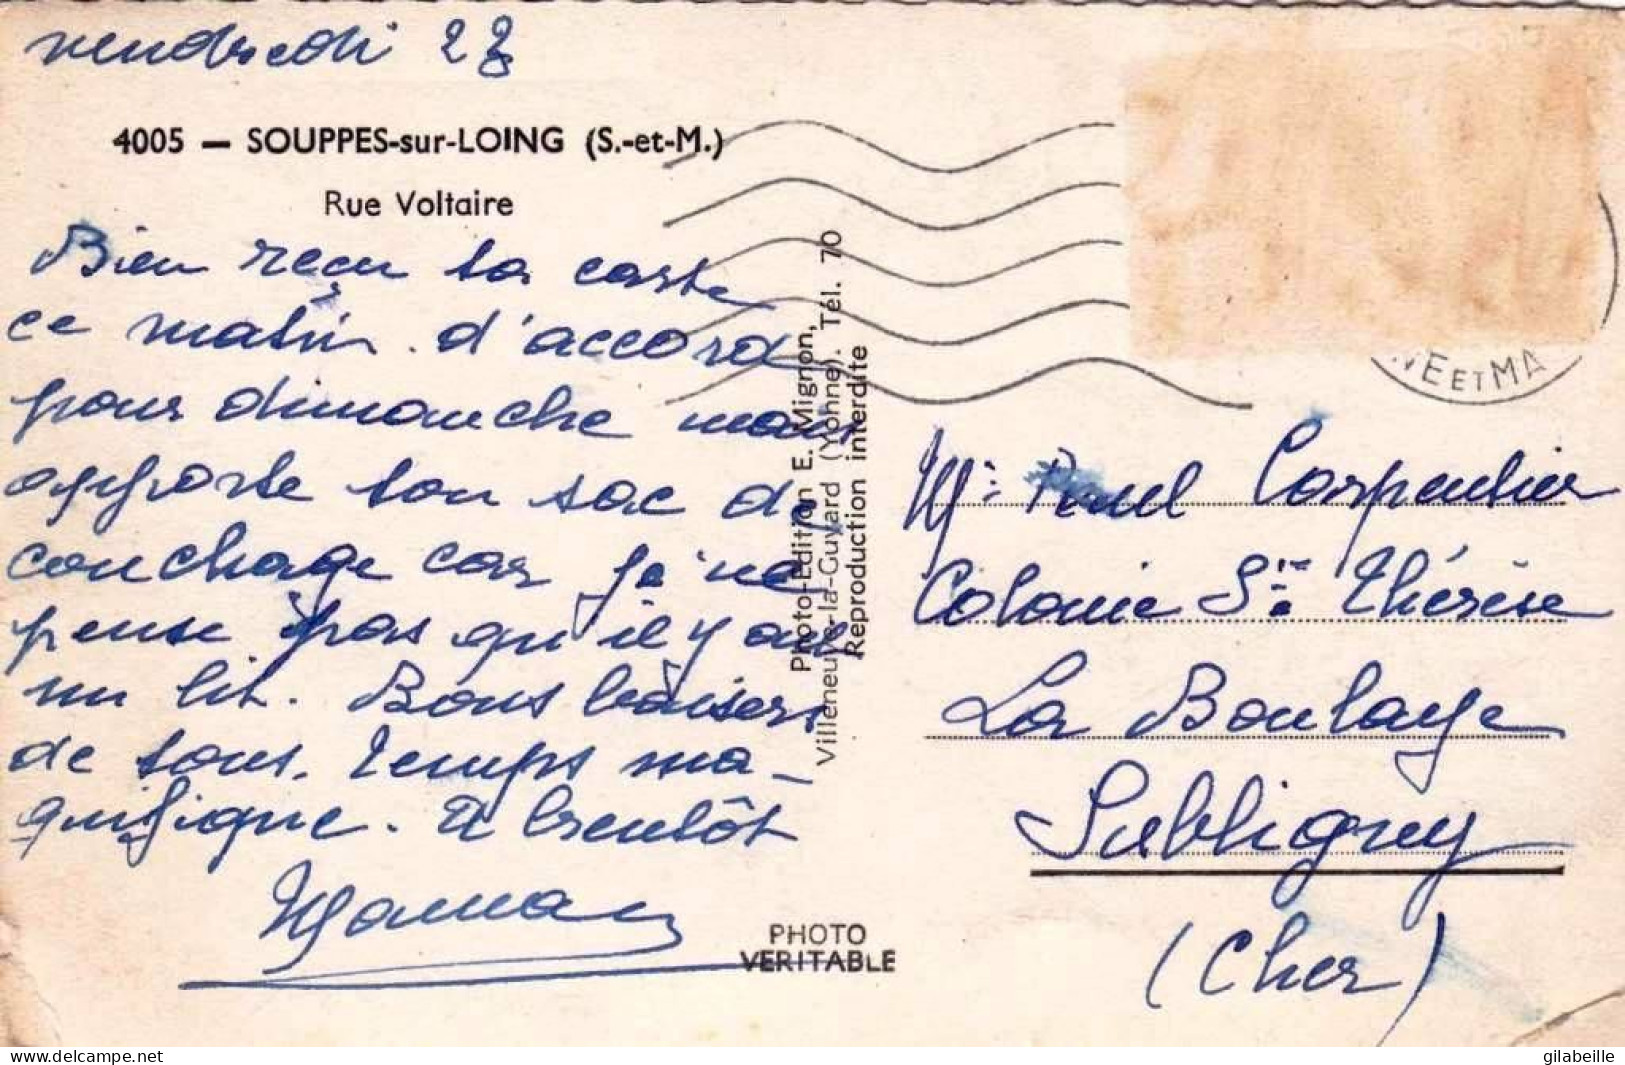 vendredi 28
4005 — SOUPPES-sur-LOING (S.-et-M.)
Rue Voltaire
Bien reçu ta carte
ce matin. d'accord
pour dimanche mais
apporte ton sac de
couchage car je ne
pense pas qu'il y ait
un lit. Bons baisers
de tous. temps ma-
gnifique. A bientôt
Maman
Photo-Edition E. Mignon,
Villeneuve-la-Guyard (Yonne). Tél. 70
Reproduction interdite
PHOTO
VERITABLE
NE ET MA
Mr Paul Carpentier
Colonie Ste Thérèse
La Boulaye
Subligny
(Cher)
delcampe.net
gilabeille